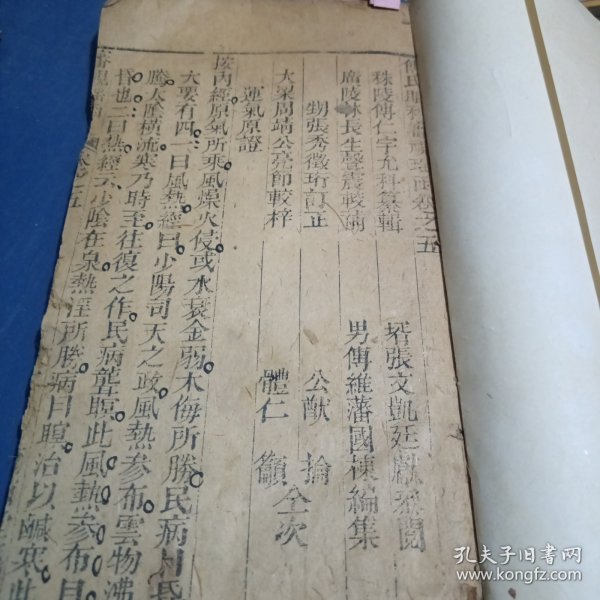 傅氏眼科審視瑤函卷之五
秣陵傅仁宇允科纂輯　壻張文凱廷獻叅閱
廣陵林長生聲震較補　男傅維藩國棟編集
甥張秀徵珩訂正　公猷掄
大梁周靖公亮節較梓　體仁籲　仝次
運氣原證
按內經原氣所乘風燥火侵或水衰金弱木侮所勝民病目昏
大要有四一曰風熱經曰少陽司天之政風熱參布雲物沸
騰太陰橫流寒乃時至往復之作民病聾瞑此風熱參布目
昏也二曰熱經云少陰在泉熱淫所勝病目瞑治以鹹寒此
卷之五
孔夫子旧书网
www.kongfz.com